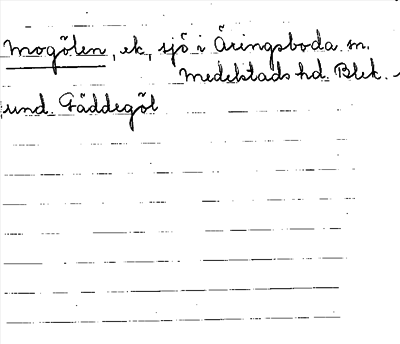 Mogölen, ek, sjö i Äringsboda. sn.
Medelstads hd. Blek.
und. Gäddegöl